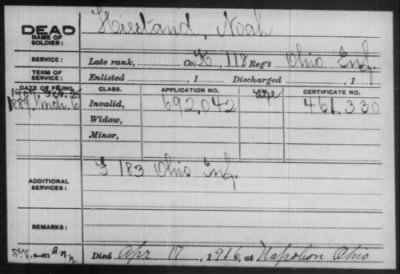 DEAD
NAME OF SOLDIER: Hiestand, Noah
SERVICE: Late rank, Co. K, 118 Reg't Ohio Inf.
TERM OF SERVICE: Enlisted , 1 Discharged , 1
DATE OF FILING. CLASS. APPLICATION NO. LAW. CERTIFICATE NO.
1889 Mch. 6 Invalid, 692,042 461,330
Widow,
Minor,
ADDITIONAL SERVICES: F 183 Ohio Inf.
REMARKS:
Died Apr 17, 1916, at Napoleon Ohio